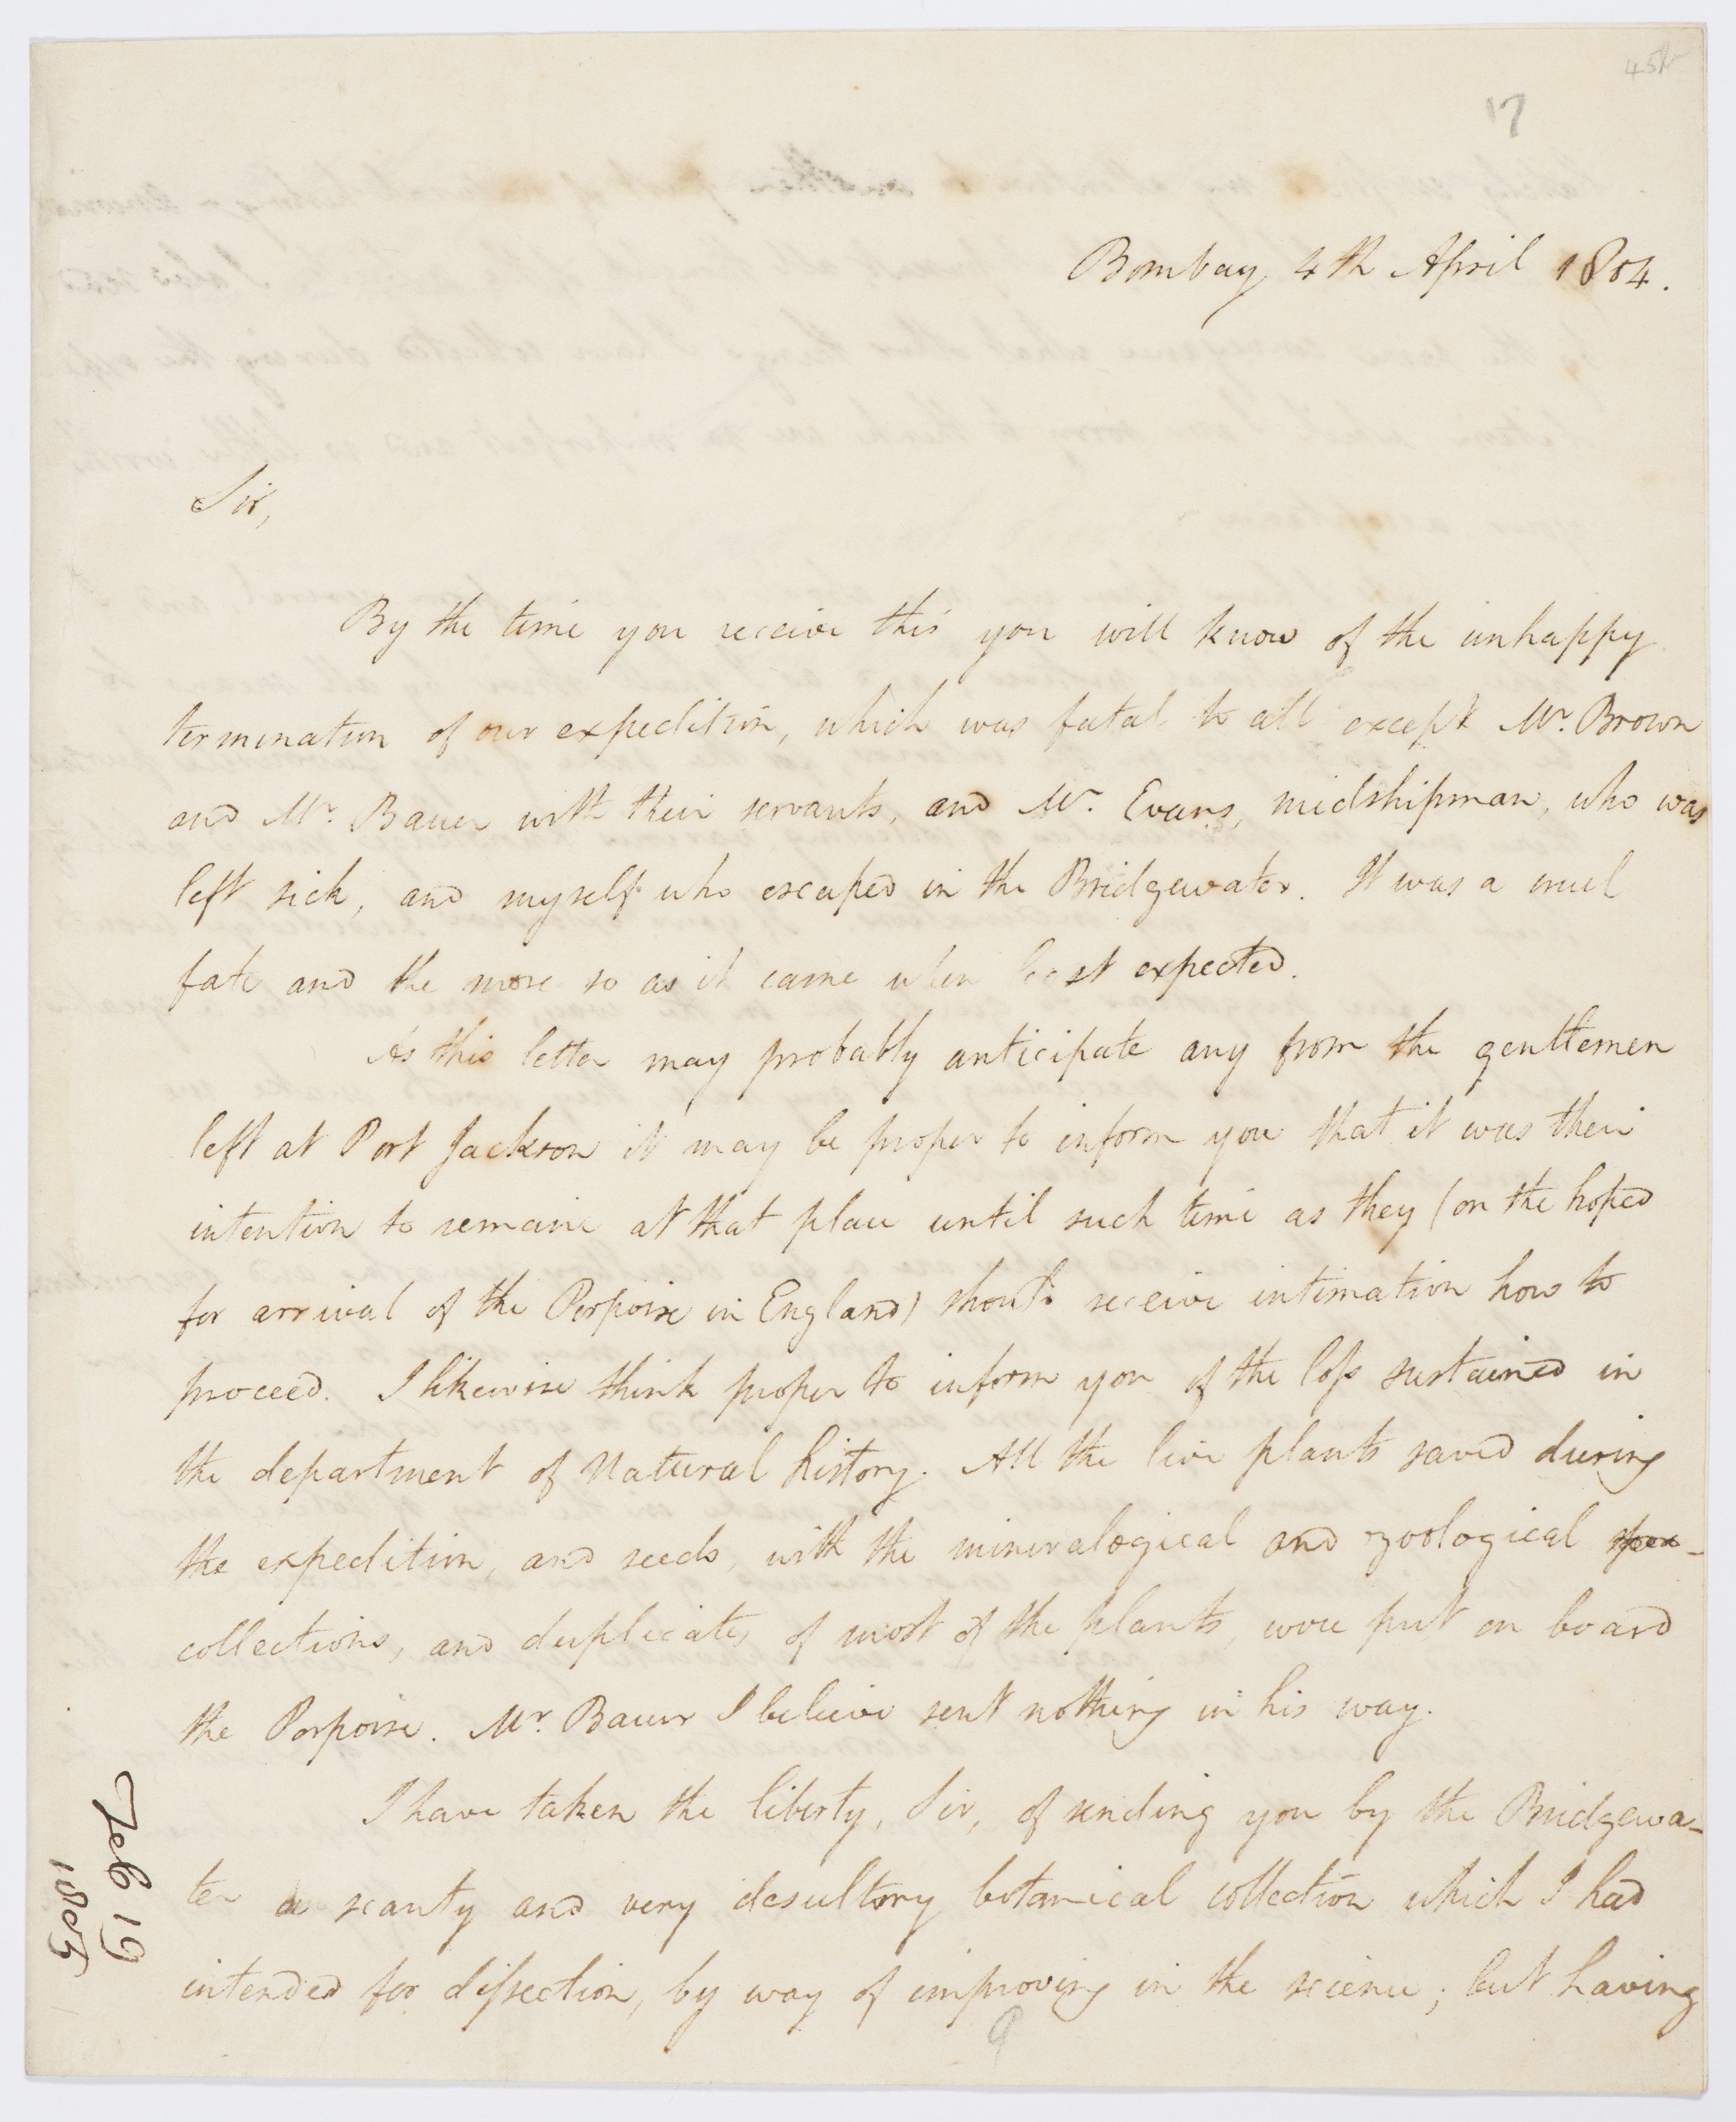 17
Bombay 4th April 1804.
Sir,
By the time you receive this you will know of the unhappy
termination of our expedition, which was fatal to all except Mr. Brown
and Mr. Bauer with their servants, and Mr. Evans, midshipman, who was
left sick, and myself who escaped in the Bridgewater. It was a cruel
fate and the more so as it came when least expected.
As this letter may probably anticipate any from the gentlemen
left at Port Jackson it may be proper to inform you that it was their
intention to remain at that place until such time as they (on the hoped
for arrival of the Porpoise in England) should receive intimation how to
proceed. I likewise think proper to inform you of the loss sustained in
the department of Natural history. All the live plants saved during
the expedition, and seeds, with the mineralogical and zoological
collections, and duplicates of most of the plants, were put on board
the Porpoise. Mr. Bauer I believe sent nothing in his way.
I have taken the liberty, Sir, of sending you by the Bridgewa-
ter a scanty and very desultory botanical collection which I had
intended for dissection, by way of improving in the science; but having
9
Feb 19
1805